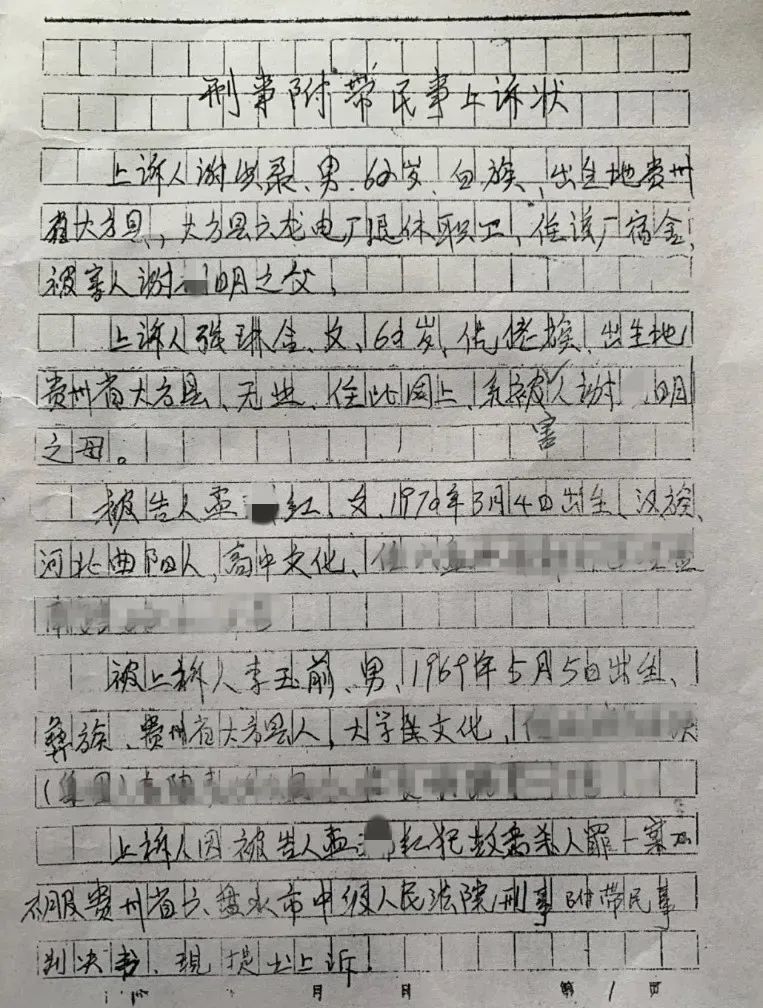 刑事附带民事上诉状
上诉人谢洪录、男、62岁、白族、出生地贵州
省大方县,、大方县六龙电厂退休职工、住该厂宿舍、
被害人谢 明之父、
上诉人张琳仝、女、62岁、仡佬族、出生地
贵州省大方县、无业、住址同上、系被害人谢 明
之母。
被告人孟 红、女、1970年3月4日出生、汉族、
河北曲阳人,高中文化、住
被上诉人李玉前、男、1969年5月5日出生、
彝族、贵州省大方县人,大学生文化,住
(集团)
上诉人因被告人孟 红犯故意杀人罪一案不
服贵州省六盘水市中级人民法院刑事附带民事
判决书、现提出上诉!
月 日 第1页